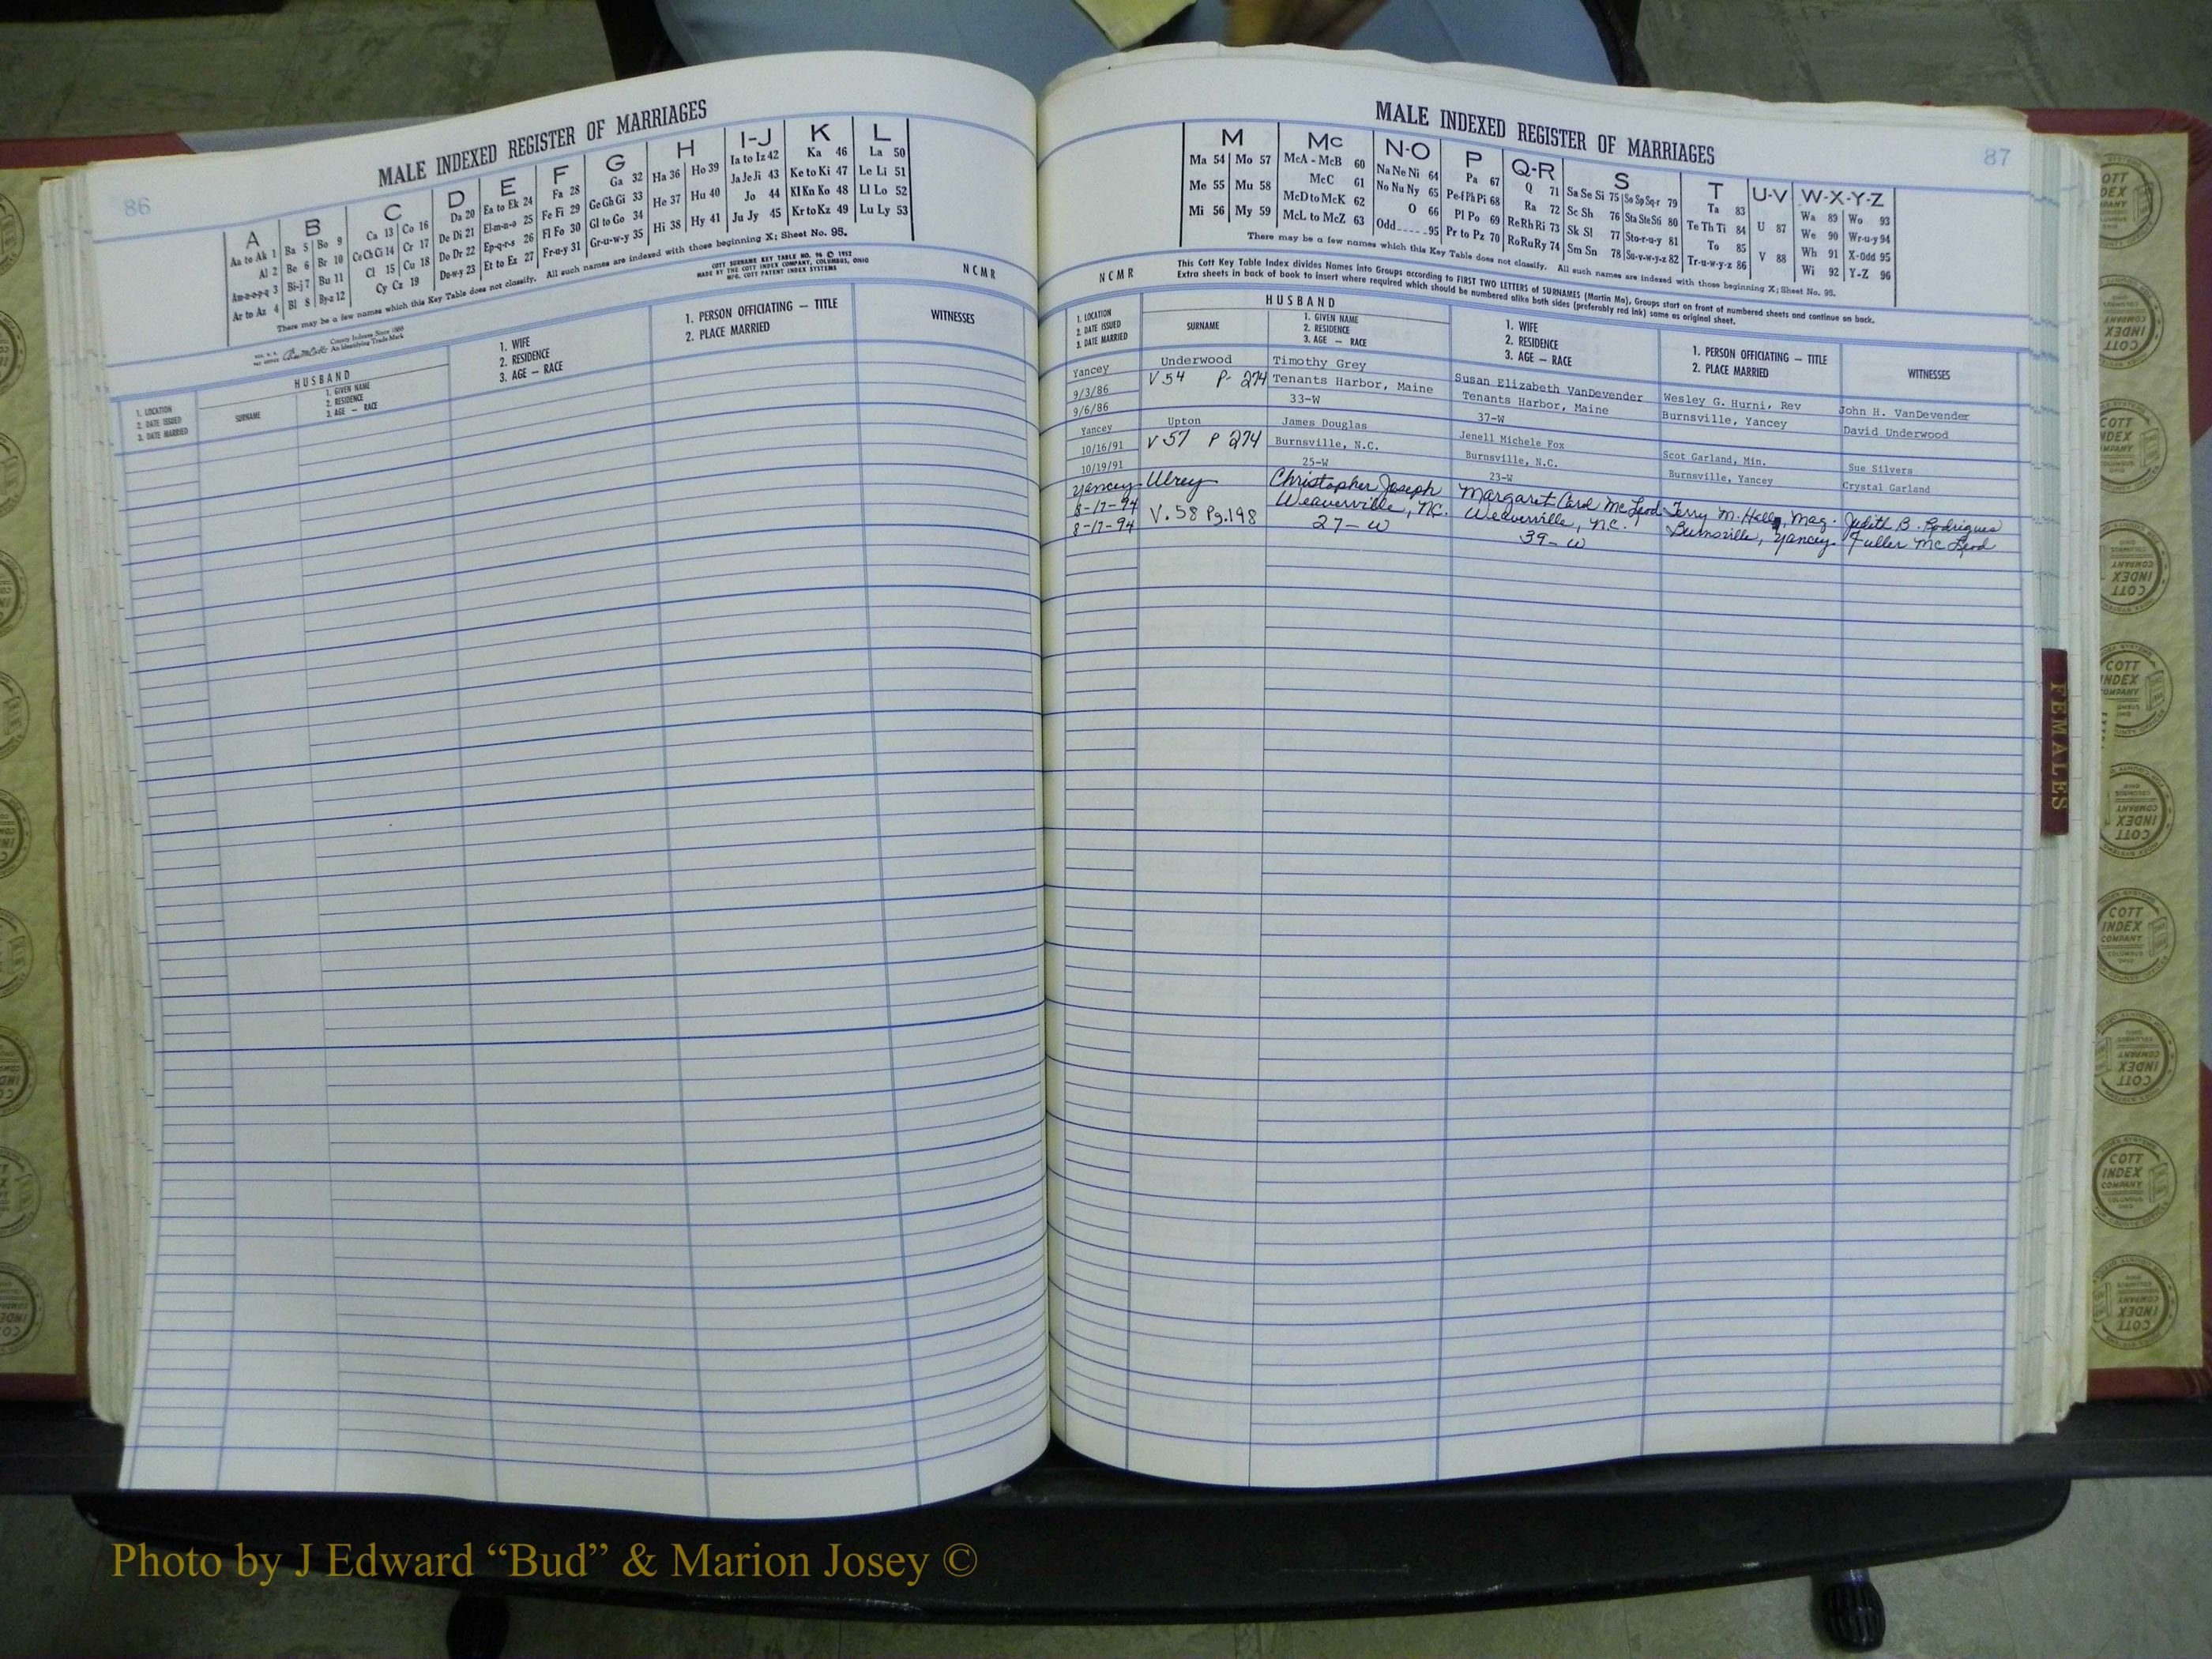 86
MALE INDEXED REGISTER OF MARRIAGES
A B C D E F G H I-J K L
Aa to Ak 1 Ba 5 Bo 9 Ca 13 Co 16 Da 20 Ea to Ek 24 Fa 28 Ga 32 Ha 36 Ho 39 Ia to Iz 42 Ka 46 La 50
Al 2 Be 6 Br 10 Ce Ch Ci 14 Cr 17 De Di 21 El-m-n-o 25 Fe Fi 29 Ge Gh Gi 33 He 37 Hu 40 Ja Je Ji 43 Ke to Ki 47 Le Li 51
Am-n-o-p-q 3 Bi-j 7 Bu 11 Cl 15 Cu 18 Do Dr 22 Ep-q-r-s 26 Fl Fo 30 Gl to Go 34 Hi 38 Hy 41 Jo 44 Kl Kn Ko 48 Ll Lo 52
Ar to Az 4 Bl 8 By-z 12 Cy Cz 19 Du-w-y 23 Et to Ez 27 Fr-u-y 31 Gr-u-w-y 35 Ju Jy 45 Kr to Kz 49 Lu Ly 53
There may be a few names which this Key Table does not classify. All such names are indexed with those beginning X; Sheet No. 95.
COTT SURNAME KEY TABLE NO. 96 © 1952
MADE BY THE COTT INDEX COMPANY, COLUMBUS, OHIO
MFG. COTT PATENT INDEX SYSTEMS
NCMR
County Indexes Since 1888
An Identifying Trade Mark
HUSBAND
1. LOCATION
2. DATE ISSUED
3. DATE MARRIED
SURNAME
1. GIVEN NAME
2. RESIDENCE
3. AGE — RACE
1. WIFE
2. RESIDENCE
3. AGE — RACE
1. PERSON OFFICIATING — TITLE
2. PLACE MARRIED
WITNESSES
MALE INDEXED REGISTER OF MARRIAGES
87
M Mc N-O P Q-R S T U-V W-X-Y-Z
Ma 54 Mo 57 McA - McB 60 Na Ne Ni 64 Pa 67 Q 71 Sa Se Si 75 So Sp Sq-r 79 Ta 83 U 87 Wa 89 Wo 93
Me 55 Mu 58 McC 61 No Nu Ny 65 Pe-f Ph Pi 68 Ra 72 Sc Sh 76 Sta Ste Sti 80 Te Th Ti 84 V 88 We 90 Wr-u-y 94
Mi 56 My 59 McD to McK 62 O 66 Pl Po 69 Re Rh Ri 73 Sk Sl 77 Sto-r-u-y 81 To 85 Wh 91 X-Odd 95
McL to McZ 63 Odd 95 Pr to Pz 70 Ro Ru Ry 74 Sm Sn 78 Su-v-w-y-z 82 Tr-u-w-y-z 86 Wi 92 Y-Z 96
There may be a few names which this Key Table does not classify. All such names are indexed with those beginning X; Sheet No. 95.
NCMR
This Cott Key Table Index divides Names into Groups according to FIRST TWO LETTERS of SURNAMES (Martin Ma), Groups start on front of numbered sheets and continue on back.
Extra sheets in back of book to insert where required which should be numbered alike both sides (preferably red ink) same as original sheet.
HUSBAND
1. LOCATION
2. DATE ISSUED
3. DATE MARRIED
SURNAME
1. GIVEN NAME
2. RESIDENCE
3. AGE — RACE
1. WIFE
2. RESIDENCE
3. AGE — RACE
1. PERSON OFFICIATING — TITLE
2. PLACE MARRIED
WITNESSES
Yancey Underwood Timothy Grey Susan Elizabeth VanDevender Wesley G. Hurni, Rev John H. VanDevender
9/3/86 V 54 P- 274 Tenants Harbor, Maine Tenants Harbor, Maine Burnsville, Yancey David Underwood
9/6/86 33-W 37-W
Yancey Upton James Douglas Jenell Michele Fox Scot Garland, Min. Sue Silvers
10/16/91 V 57 P 274 Burnsville, N.C. Burnsville, N.C. Burnsville, Yancey Crystal Garland
10/19/91 25-W 23-W
Yancey Ulrey Christopher Joseph Margaret Carol McLeod Terry M. Hall, Mag. Judith B. Rodrigues
8-17-94 V. 58 Pg. 198 Weaverville, NC. Weaverville, N.C. Burnsville, Yancey Fuller McLeod
8-17-94 27-W 39-W
FEMALES
COTT
INDEX
COMPANY
COLUMBUS
OHIO
Photo by J Edward “Bud” & Marion Josey ©